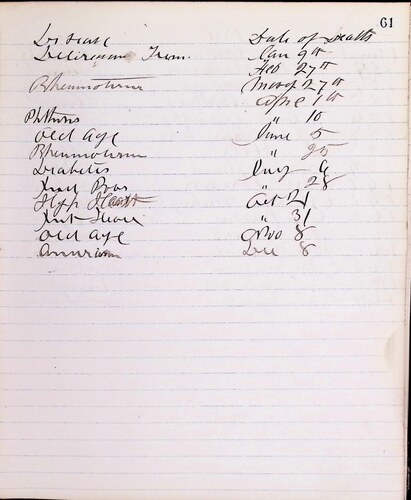 61
Disease Date of Death
Delirium Trem. Jan 9th
Feb 27th
Rheumatism March 27th
April 1th
Phthisis " 10
Old Age June 5
Rheumatism " 25
Diabetes Aug 6
" 28
Hyp Heart Oct 21
" 31
Old Age Nov 8
Aneurism Dec 8